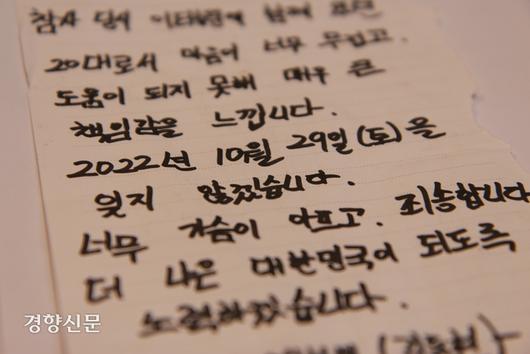 참사 당시 이태원에 함께 있던
20대로서 마음이 너무 무겁고.
도움이 되지 못해 매우 큰
책임감을 느낍니다.
2022년 10월 29일(토)을
잊지 않겠습니다.
너무 가슴이 아프고. 죄송합니다
더 나은 대한민국이 되도록
노력하겠습니다.
경향신문